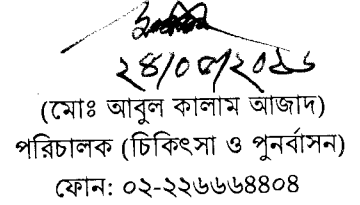 (মোঃ আবুল কালাম আজাদ)
পরিচালক (চিকিৎসা ও পুনর্বাসন)
ফোন: ০২-২২৬৬৬৪৪০৪